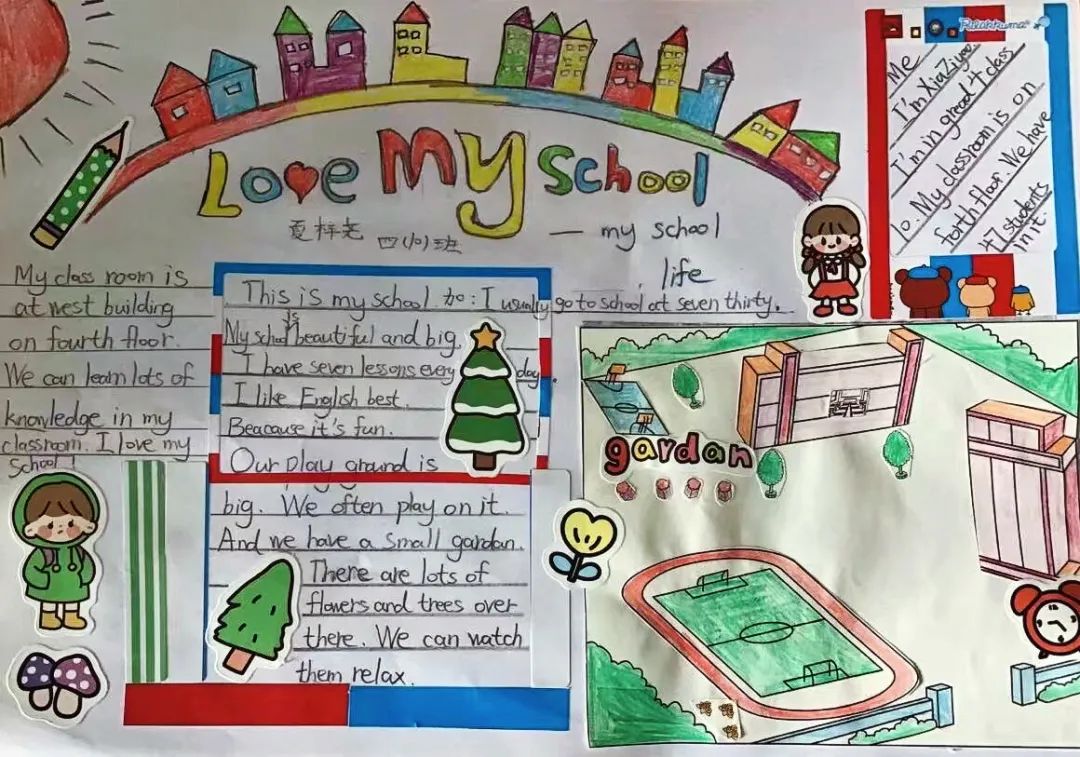 Love My School
夏梓尧 四(10)班
— my school
life
Rilakkuma
Me
I'm XiaZiyao
I'm in greod 4 class
10. My classroom is on
forth floor. We have
47 students
in it.
My class room is
at west building
on fourth floor.
We can learn lots of
knowledge in my
classroom. I love my
school!
This is my school. 加: I usually go to school at seven thirty.
My school is beautiful and big.
I have seven lessons every day.
I like English best.
Beacause it's fun.
Our play ground is
big. We often play on it.
And we have a small gardan.
There are lots of
flowers and trees over
there. We can watch
them relax.
gardan